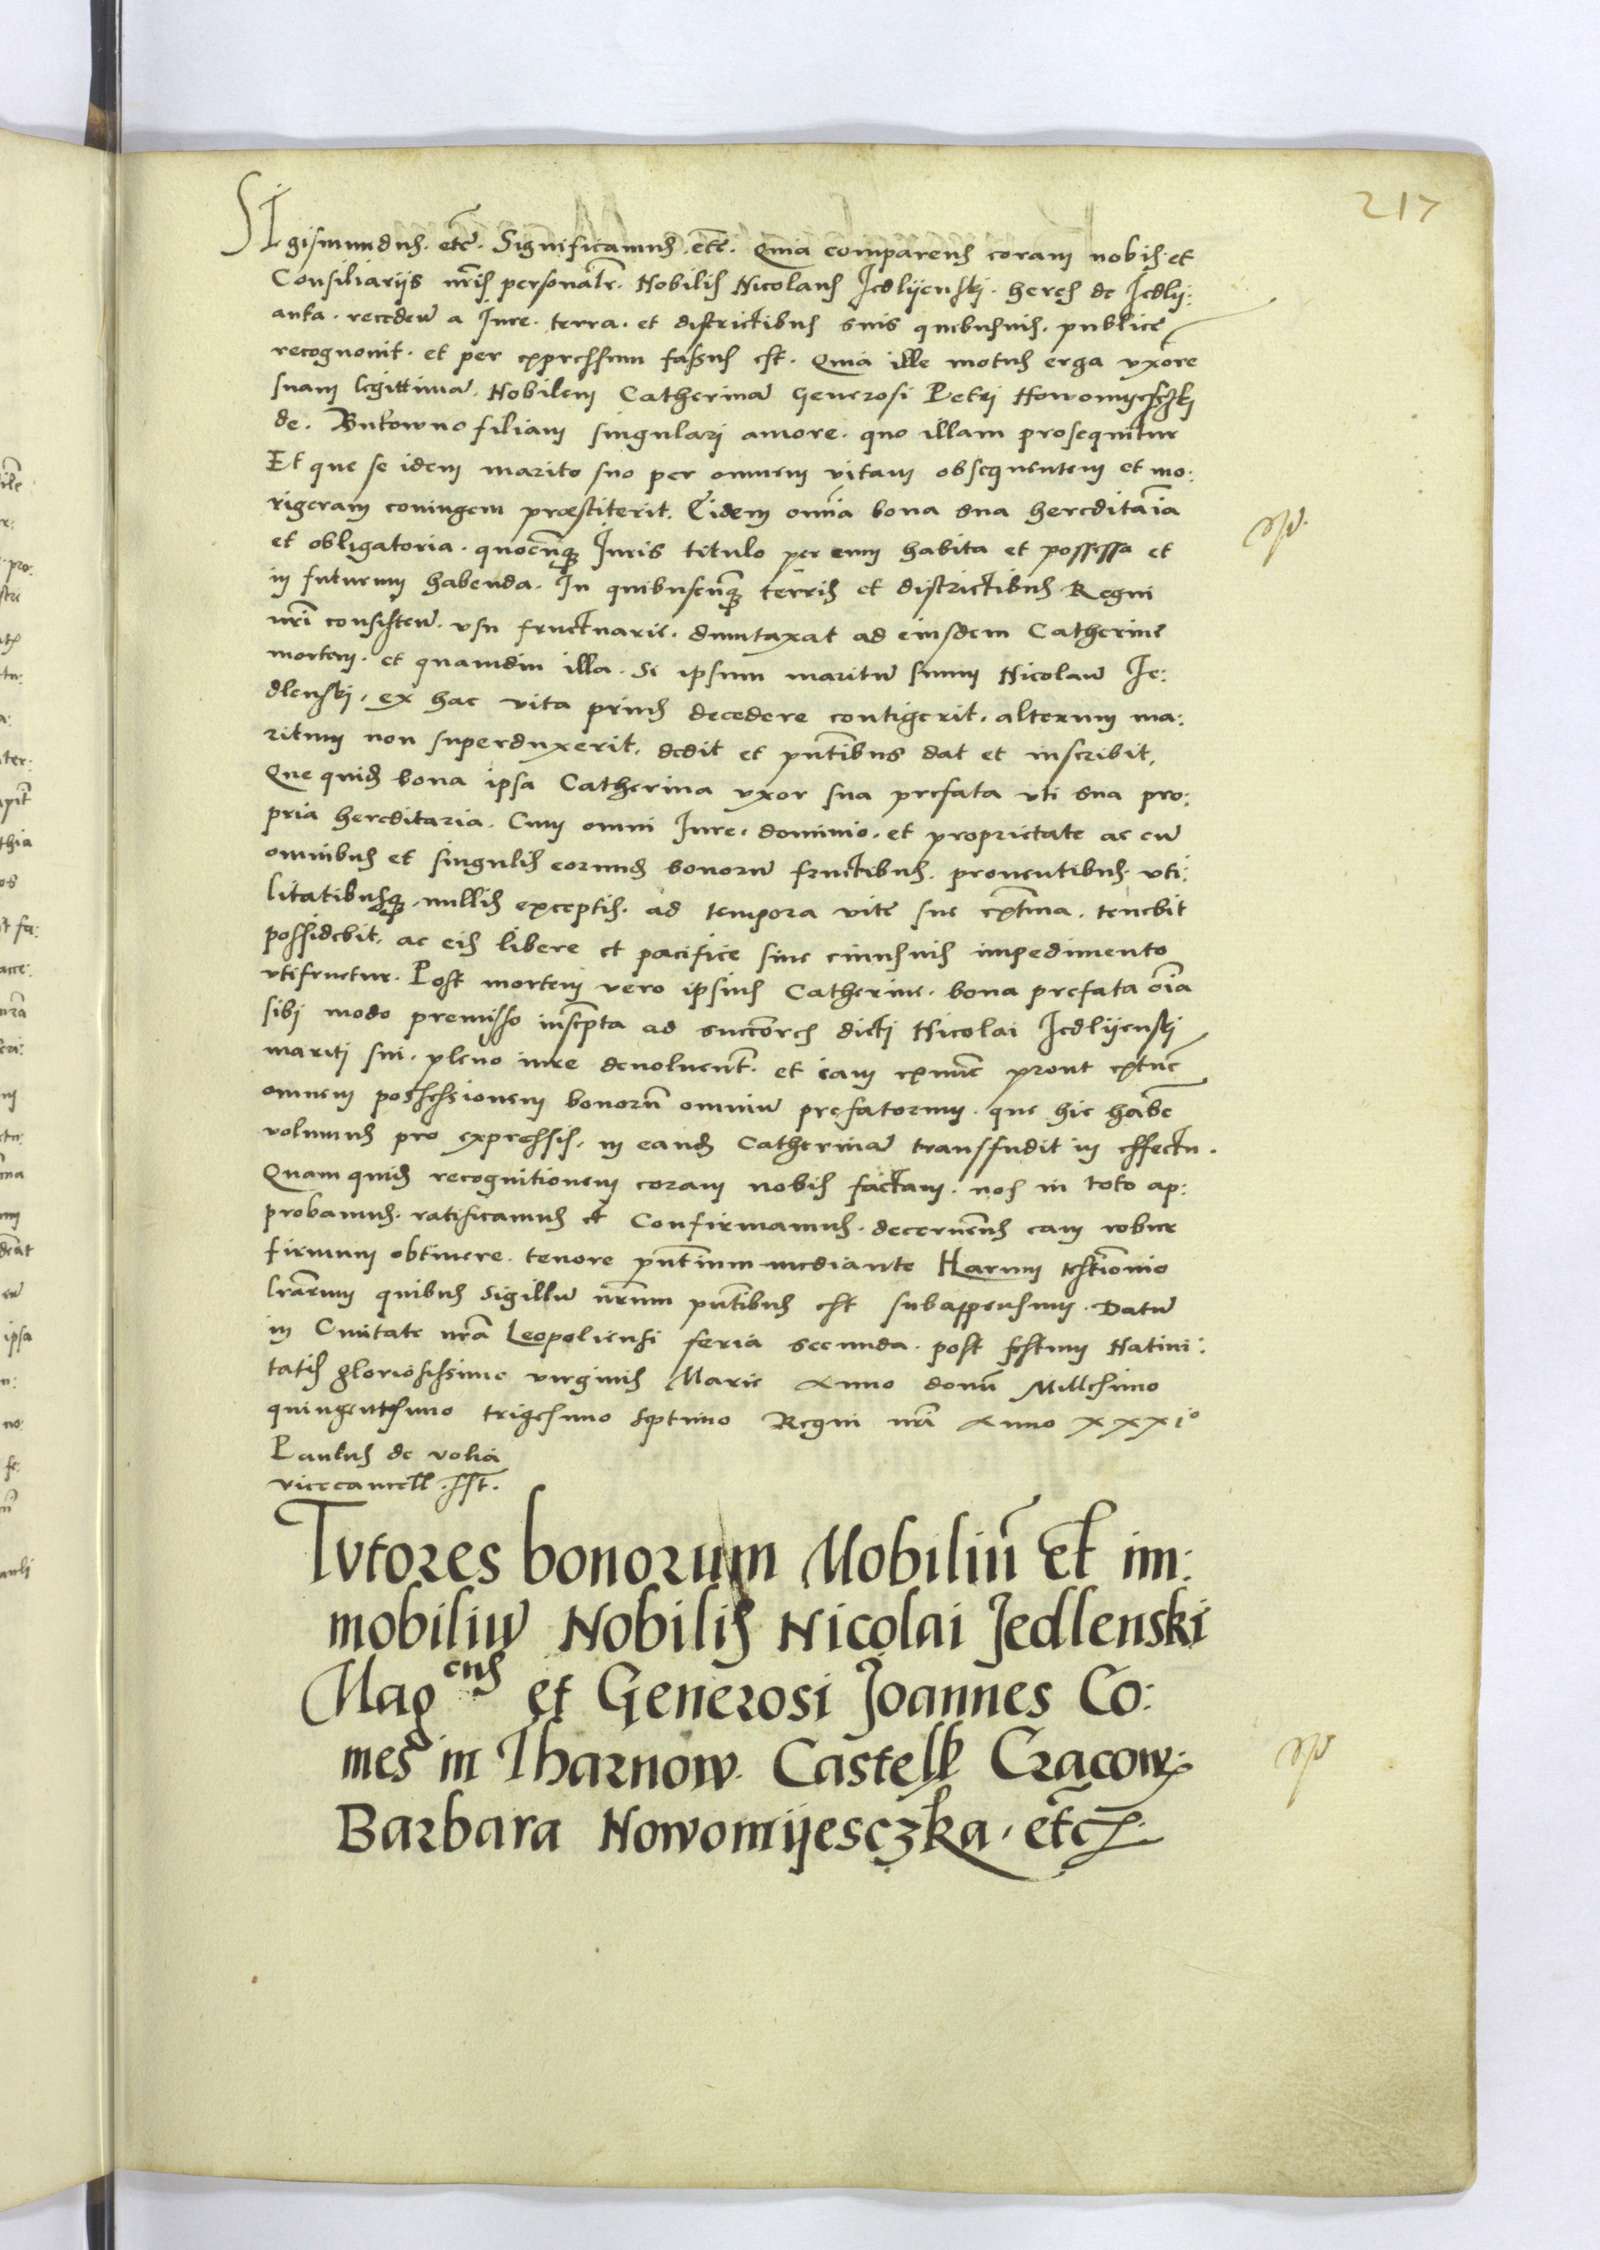 217
SIgismundus. etc. Significamus. etc. Quia comparens coram nobis et
Consiliariis nr̃is personalr̃. Nobilis Nicolaus Jedlijenski. heres de Jedlij:
anka. recedeñ a Iure. terra. et districtibus suis quibusuis. publice
recognouit. et per expressum fassus est. Quia ille motus erga vxore
suam legittimã. Nobilem Catherinã Generosi Petri Nowomyesczki
de. Butowno filiam singulari amore. quo illam prosequitur
Et que se idem marito suo per omnem vitam obsequentem et mo:
rigeram coniugem præstiterit. Eidem omnia bona sua hereditaria
et obligatoria. quocunq; Iuris titulo per eum habita et possessa et
in futurum habenda. In quibuscunq; terris et districtibus Regni
nr̃i consisteñ. vsu fructuarie. dumtaxat ad eiusdem Catherine
mortem. et quamdiu illa. Si ipsum maritũ suum Nicolaũ Je:
dlenski. ex hac vita prius decedere contigerit. alterum ma:
ritum non superduxerit. dedit et pñtibus dat et inscribit.
Que quidẽ bona ipsa Catherina vxor sua prefata vti sua pro:
pria hereditaria. Cum omni Iure. dominio. et proprietate ac cũ
omnibus et singulis eorundẽ bonorũ fructibus. prouentibus. vti:
litatibusq;. nullis exceptis. ad tempora vite sue extrema. tenebit
possidebit. ac eis libere et pacifice sine cuiusuis impedimento
vtifruetur. Post mortem vero ipsius Catherine. bona prefata oĩa
sibi modo premisso inscripta ad succores dicti Nicolai Jedlijenski
mariti sui. pleno iure deuoluent. et iam exnunc prout extunc
omnem possessionem bonorũ omniũ prefatorum. que hic habẽ
volumus pro expressis. in eandẽ Catherinã transfudit in effectu.
Quam quidẽ recognitionem coram nobis factam. nos in toto ap:
probamus. ratificamus et Confirmamus. decernentes eam robur
firmum obtinere. tenore pñtium mediante Harum testiomio
lr̃arum quibus Sigillũ nr̃um pñtibus est subappensum. Datũ
in Ciuitate nr̃a Leopoliensi feria secunda. post festum Natiui:
tatis gloriosissime virginis Marie Anno domi Millesimo
quingentesimo trigesimo septimo Regni nr̃i Anno XXXIo
Paulus de volia
vicecancell. sst.
Tvtores bonorum Mobiliũ et im:
mobiliũ Nobilis Nicolai Jedlenski
Magcus et Generosi Joannes Co:
mes in Tharnow. Castell Cracow.
Barbara Nowomijesczka. etc.